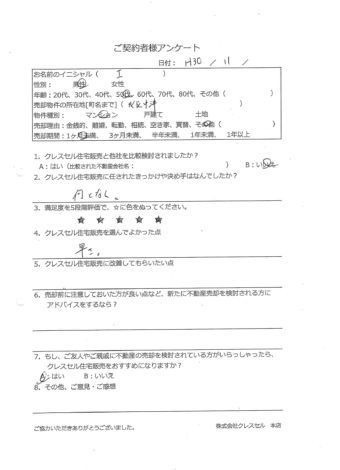 ご契約者様アンケート
日付： H30 / 11 /
お名前のイニシャル（ I ）
性別： 男性 女性
年齢：20代、30代、40代、50代、60代、70代、80代、その他（ ）
売却物件の所在地[町名まで]（ ）
物件種別： マンション 戸建て 土地
売却理由：金銭的、離婚、転勤、相続、空き家、買替、その他（ ）
売却期間：1ヶ月未満、 3ヶ月未満、 半年未満、 1年未満、 1年以上
1．クレスセル住宅販売と他社を比較検討されましたか？
A：はい（比較された不動産会社名： ） B：いいえ
2．クレスセル住宅販売に任されたきっかけや決め手はなんでしたか？
何となく。
3．満足度を5段階評価で、☆に色をぬってください。
★ ★ ★ ★ ★
4．クレスセル住宅販売を選んでよかった点
早さ。
5．クレスセル住宅販売に改善してもらいたい点
6．売却前に注意しておいた方が良い点など、新たに不動産売却を検討される方に
アドバイスをするなら？
7．もし、ご友人やご親戚に不動産の売却を検討されている方がいらっしゃったら、
クレスセル住宅販売をおすすめになりますか？
A：はい B：いいえ
8．その他、ご意見・ご感想
ご協力いただきありがとうございました。 株式会社クレスセル 本店